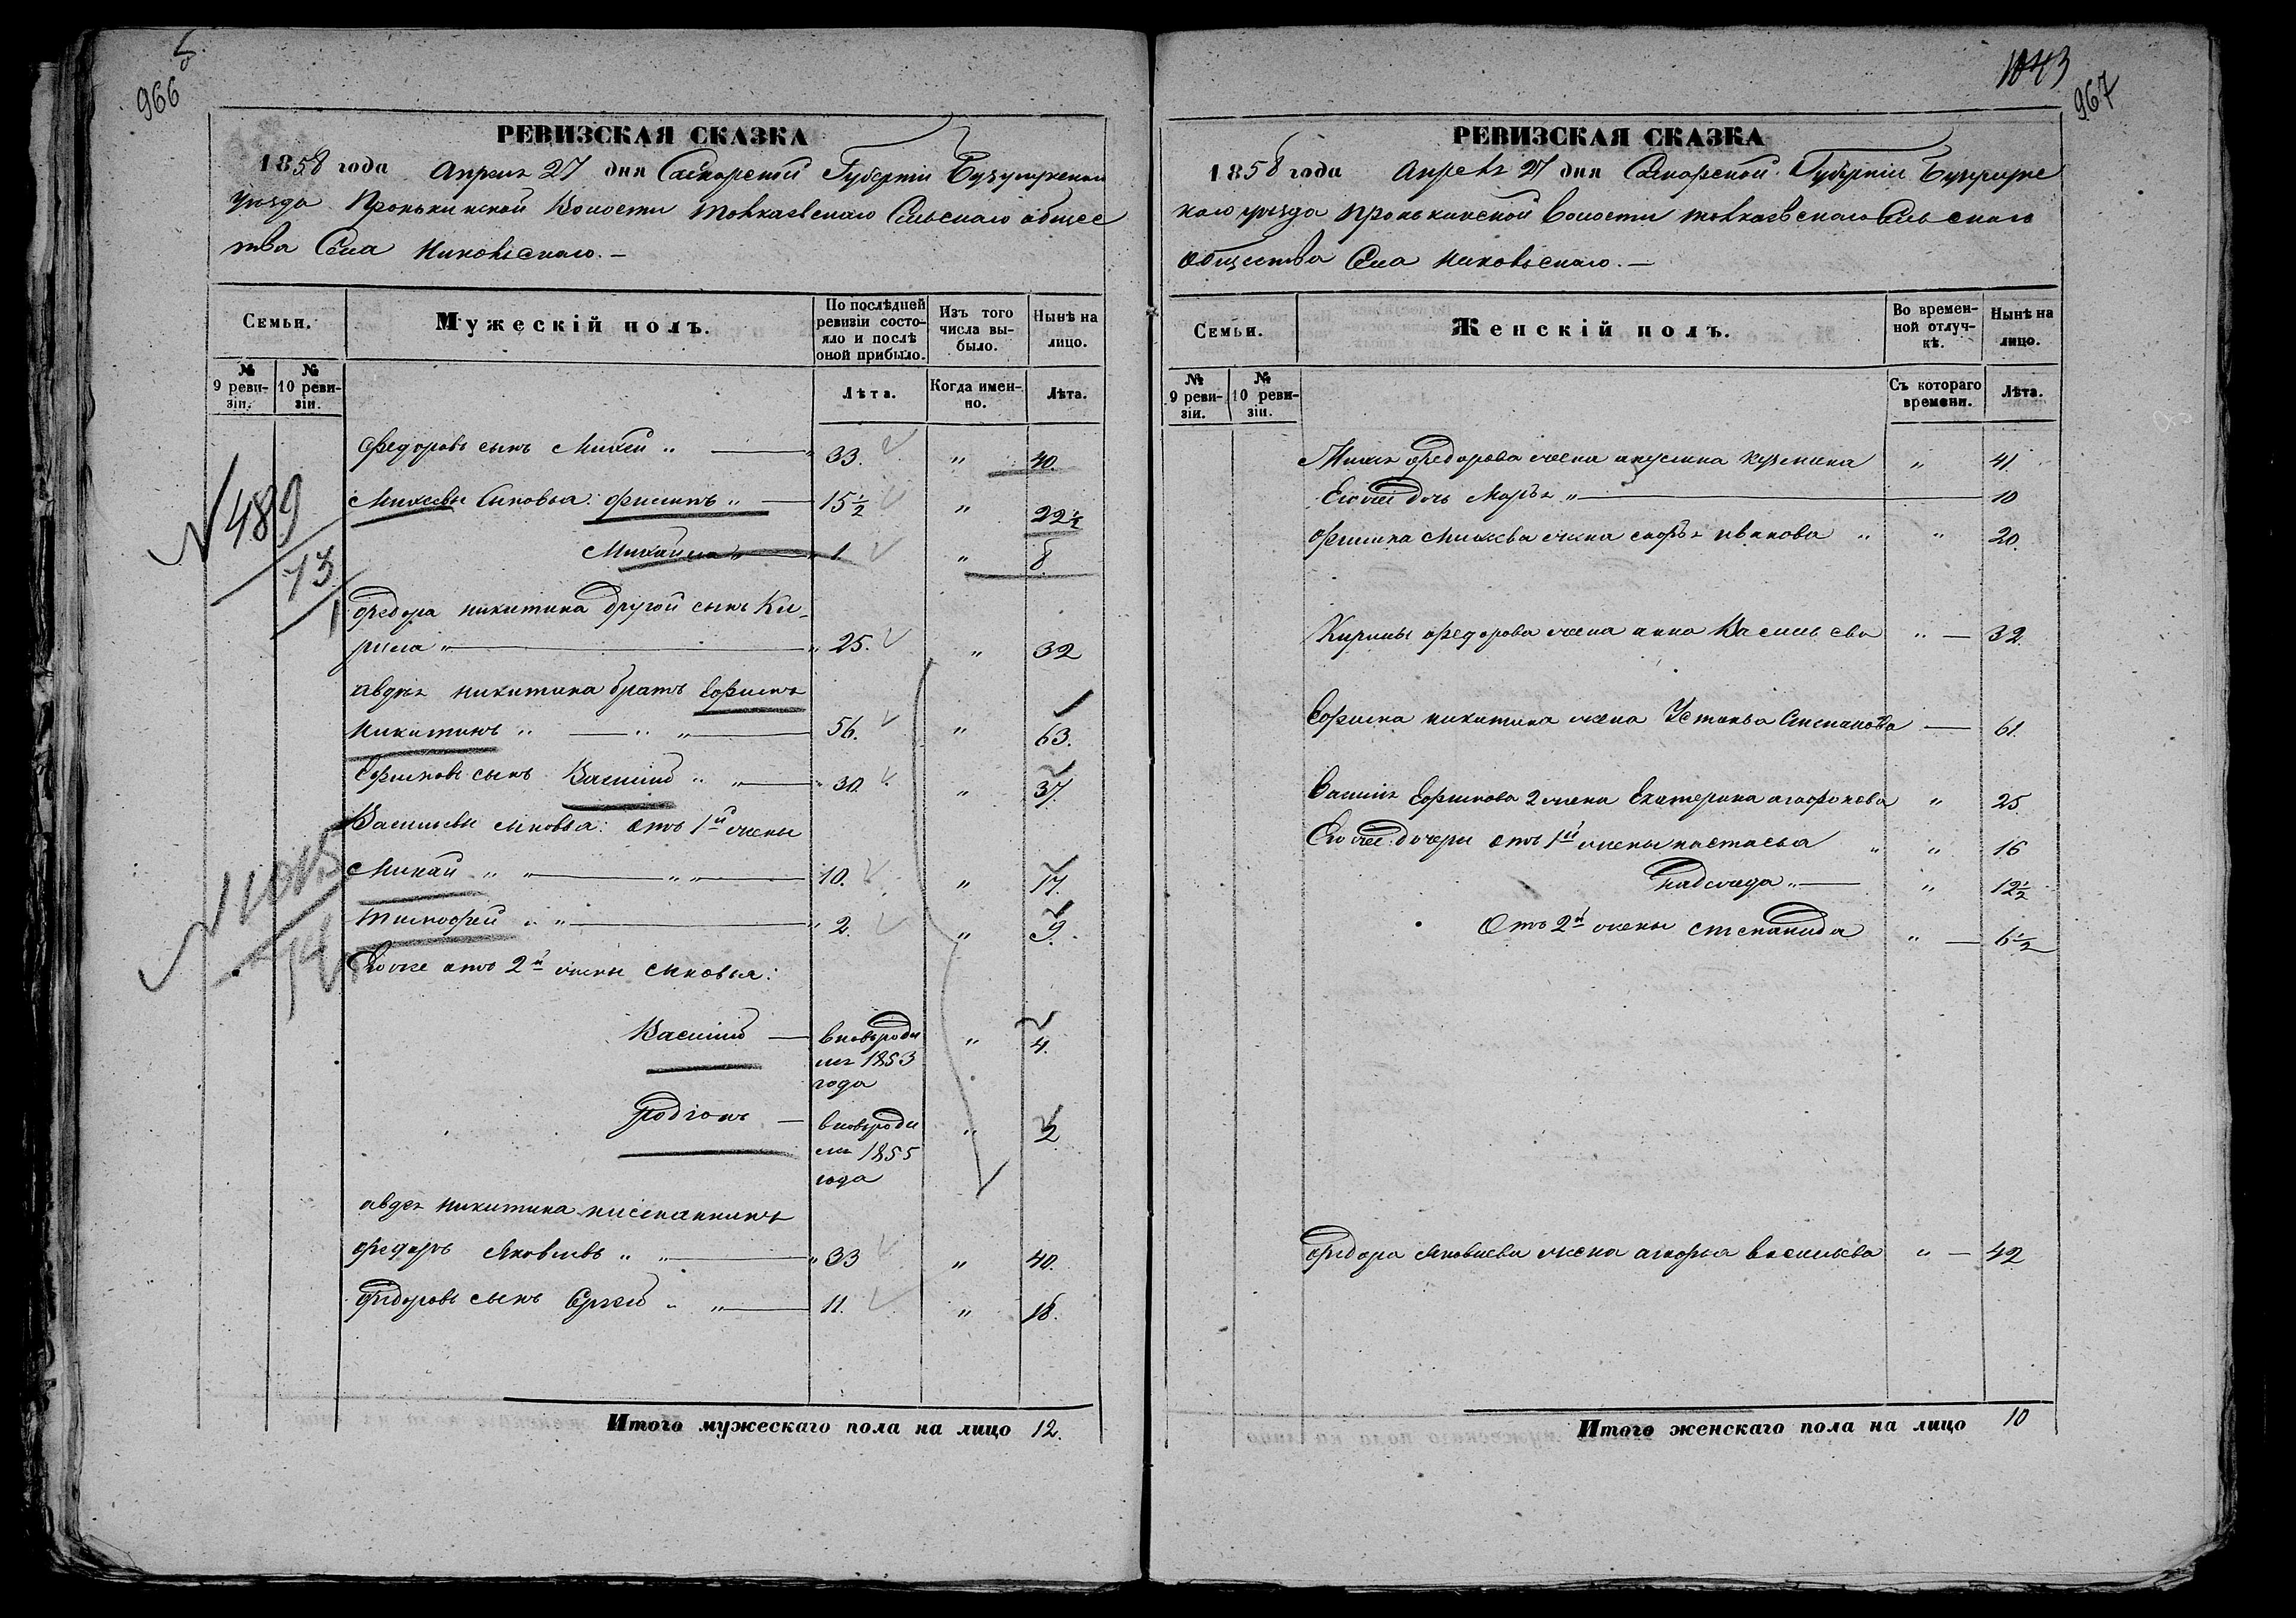 966
РЕВИЗСКАЯ СКАЗКА
1858 года Апреля 27 дня Самарской Губерніи Бузулукскаго
уѣзда Пронькинской Волости Толкаевскаго Сельскаго общес
тва Села Никольскаго. —
Семьи.
Мужескій полъ.
По послѣдней ревизіи состояло и послѣ оной прибыло.
Изъ того числа выбыло.
Нынѣ на лицо.
№ 9 ревизіи.
№ 10 ревизіи.
Лѣта.
Когда именно.
Лѣта.
Федоровъ сынъ Михей " — 33. " 40.
№ 489
13
1
Михеевы Сыновья: Филипъ " — 15½ " 22½
Михайла " — 1. " 8.
Федора Никитина другой сынъ Ки-
рила " — 25. " 32
Авдея Никитина братъ Ефимъ
Никитинъ " — 56. " 63.
Ефимовъ сынъ Василий " — 30. " 37.
Васильевы сыновья: отъ 1й жены
Минай " — 10. " 17.
Тимофей " — 2. " 9.
Его же отъ 2й жены сыновья:
Василий — вновьроди " 4.
лся 1853
года
Родіонъ — вновьроди " 2
лся 1855
года
Авдея Никитина племянникъ
Федоръ Яковлевъ " — 33 " 40.
Федоровъ сынъ Сергей " — 11. " 18.
Итого мужескаго пола на лицо 12.
1043
967
РЕВИЗСКАЯ СКАЗКА
1858 года Апреля 27 дня Самарской Губерніи Бузулукс
каго уѣзда Пронькинской Волости Толкаевскаго Сельскаго
общества Села Никольскаго. —
Семьи.
Женскій полъ.
Во временной отлучкѣ.
Нынѣ на лицо.
№ 9 ревизіи.
№ 10 ревизіи.
Съ котораго времени.
Лѣта.
Михея Федорова жена Акулина Кузмина " 41.
Его же дочь Марья " — 10
Филипа Михеева жена Иванова " " 20.
Кирилы Федорова жена Анна Васильева " — 32.
Ефима Никитина жена Устинья Степанова — 61.
Василья Ефимова 2 жена Екатерина Агафонова " 25.
Его же дочери отъ 1й жены Настасья " " 16
Надежда " — " 12½
Отъ 2й жены Степанида " — 6½
Федора Яковлева жена Васильева " — 42
Итого женскаго пола на лицо 10